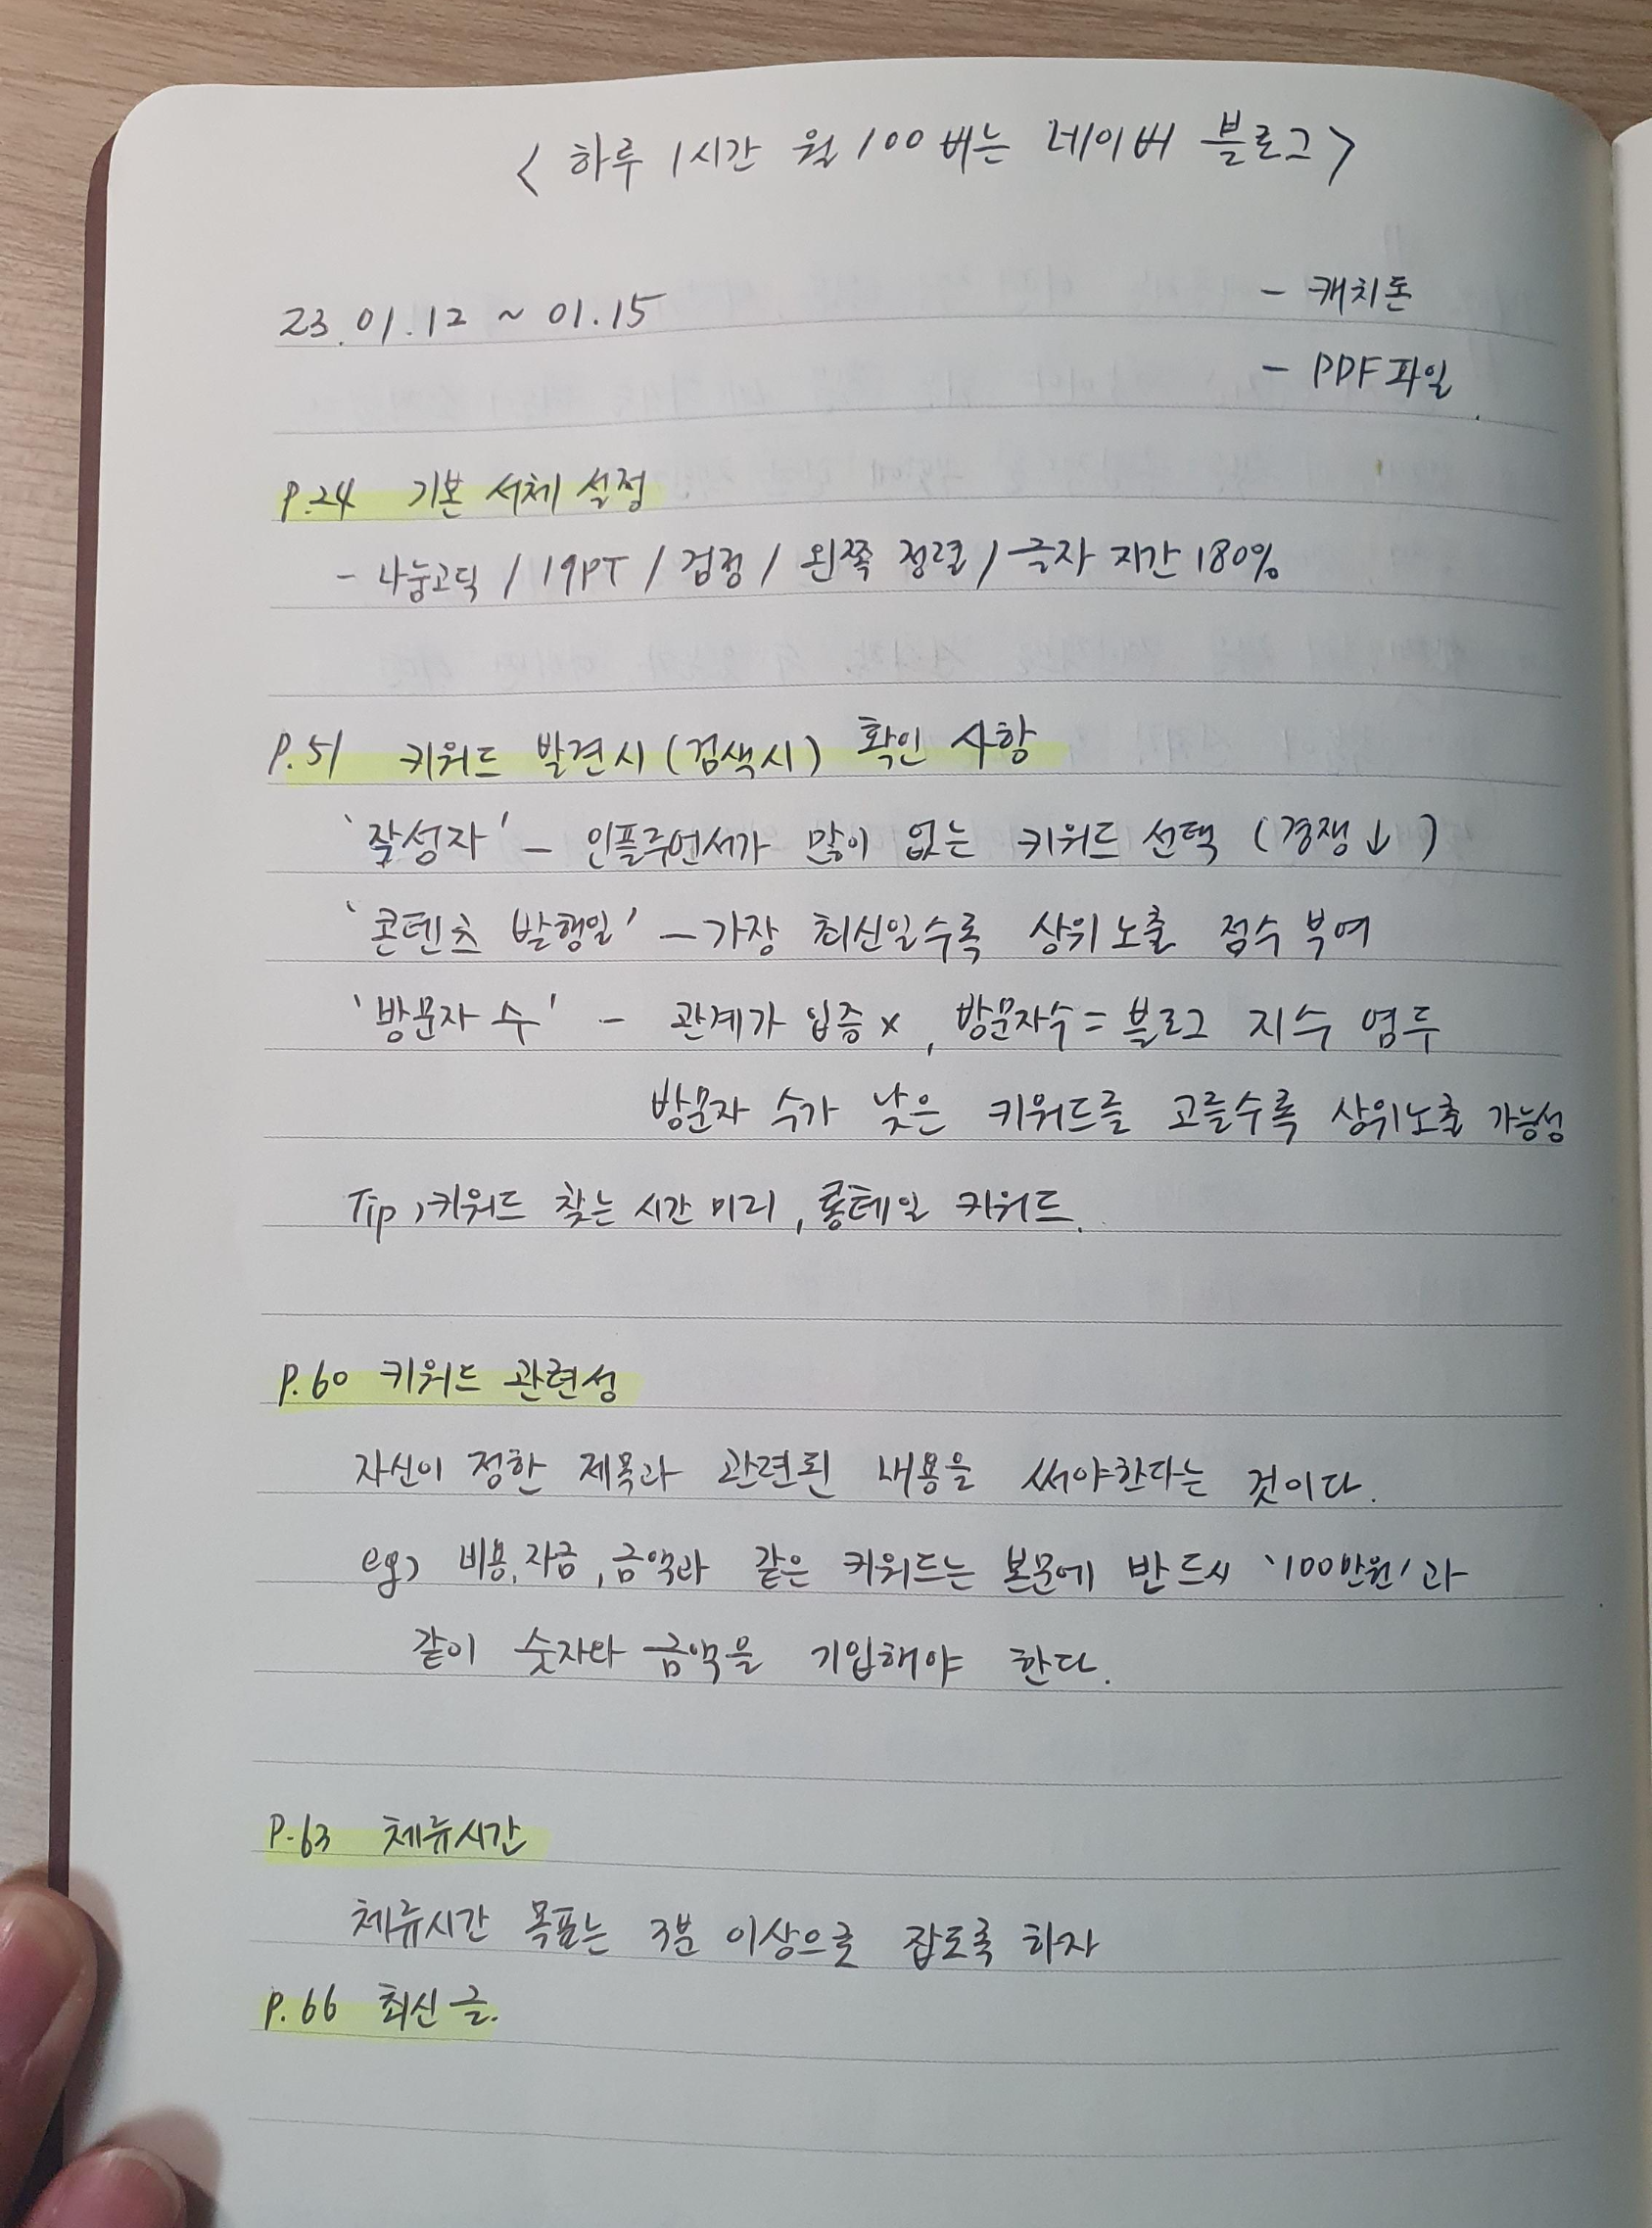 < 하루 1시간 월 100 버는 네이버 블로그 >
- 캐치톤
23.01.12 ~ 01.15
- PDF 파일
P.24 기본 서체 설정
- 나눔고딕 / 19PT / 검정 / 왼쪽 정렬 / 글자 자간 180%
P.51 키워드 발견시 (검색시) 확인 사항
'작성자' - 인플루언서가 많이 없는 키워드 선택 (경쟁↓)
'콘텐츠 발행일' - 가장 최신일수록 상위노출 점수 부여
'방문자 수' - 관계가 입증 x, 방문자수 = 블로그 지수 염두
방문자 수가 낮은 키워드를 고를수록 상위노출 가능성
Tip, 키워드 찾는 시간 미리, 롱테일 키워드.
P.60 키워드 관련성
자신이 정한 제목과 관련된 내용을 써야한다는 것이다.
eg) 비용, 자금, 금액과 같은 키워드는 본문에 반드시 '100만원'과
같이 숫자와 금액을 기입해야 한다.
P.63 체류시간
체류시간 목표는 3분 이상으로 잡도록 하자
P.66 최신 글.